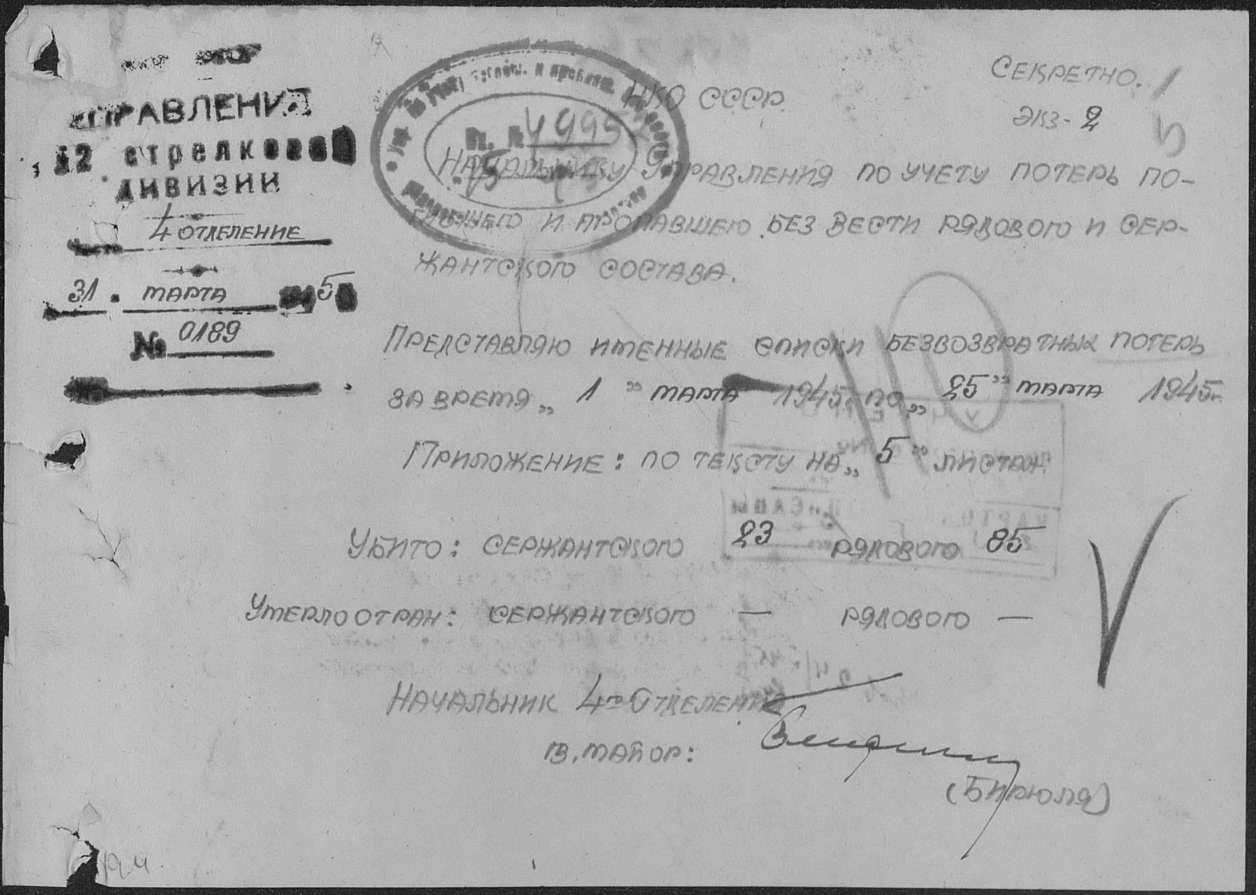 УПРАВЛЕНИЯ
12 стрелковой
ДИВИЗИИ
4 ОТДЕЛЕНИЕ
31 МАРТА 5
№ 0189
СЕКРЕТНО.
ЭКЗ-2
Вх. № 4999
НКО СССР.
НАЧАЛЬНИКУ УПРАВЛЕНИЯ ПО УЧЕТУ ПОТЕРЬ ПО-
ГИБШЕГО И ПРОПАВШЕГО БЕЗ ВЕСТИ РЯДОВОГО И СЕР-
ЖАНТСКОГО СОСТАВА.
ПРЕДСТАВЛЯЮ ИМЕННЫЕ СПИСКИ БЕЗВОЗВРАТНЫХ ПОТЕРЬ
ЗА ВРЕМЯ „ 1 " МАРТА 1945г. ПО „ 25 " МАРТА 1945г.
ПРИЛОЖЕНИЕ: ПО ТЕКСТУ НА „ 5 " ЛИСТАХ
УБИТО: СЕРЖАНТСКОГО 23 РЯДОВОГО 85
УМЕРЛО ОТ РАН: СЕРЖАНТСКОГО — РЯДОВОГО —
НАЧАЛЬНИК 4го ОТДЕЛЕНИЯ
В. МАЙОР:
(БИРЮЛЯ)